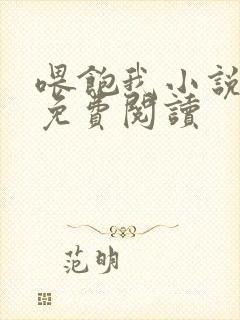 喂飽我小說
免費閱讀
范明